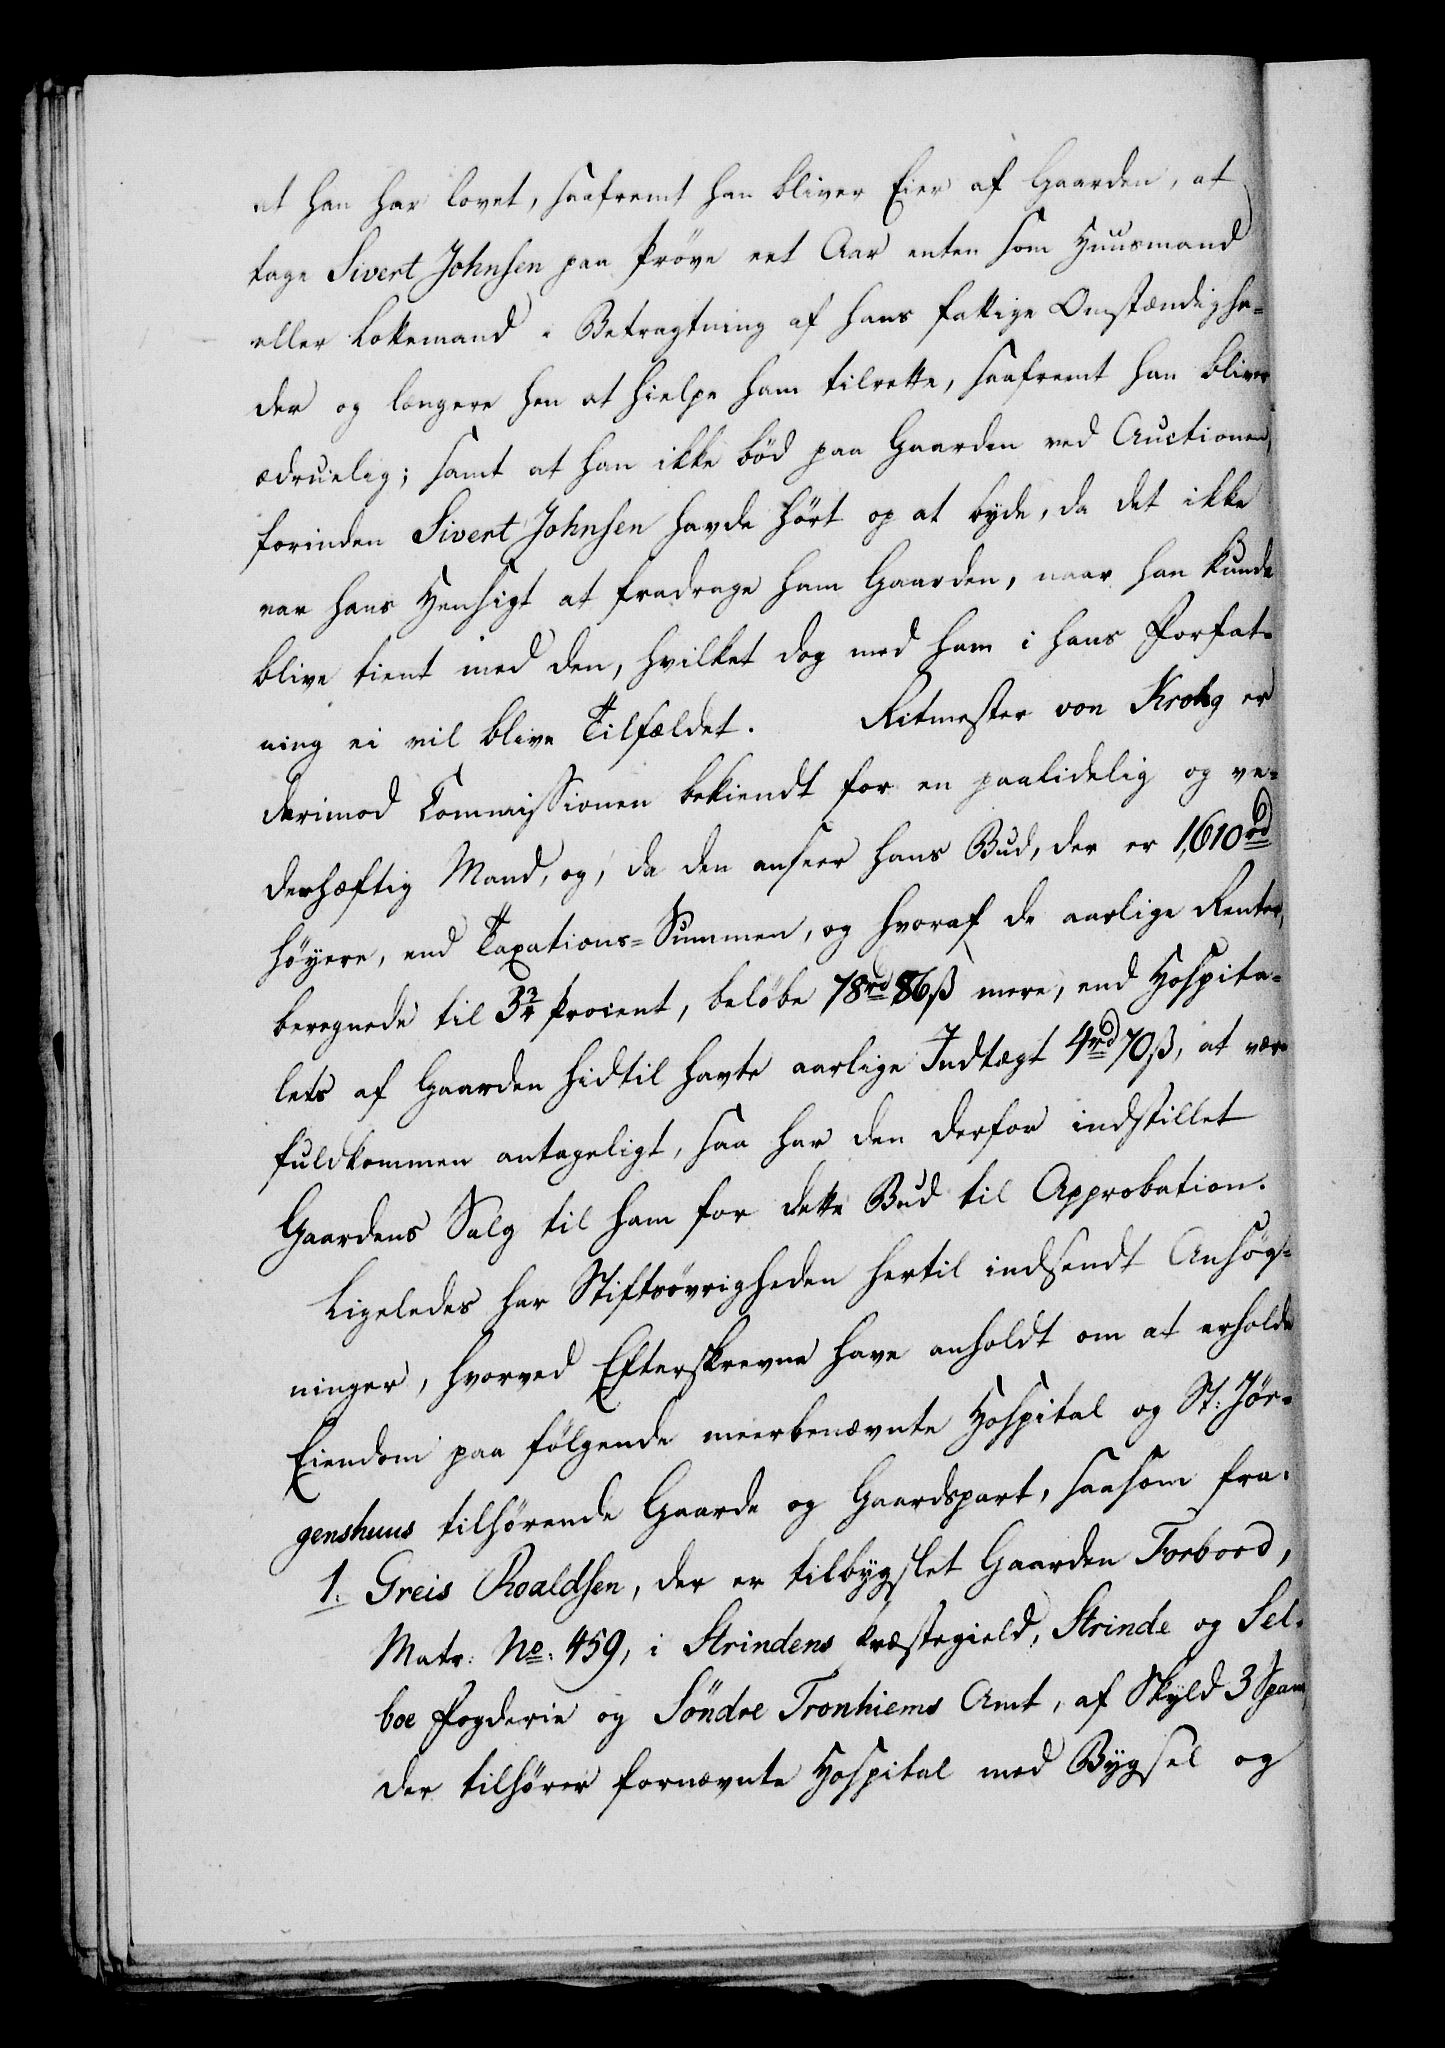 at han har lovet, saafremt han bliver Eier af Gaarden, at
tage Sivert Johnsen paa Prøve eet Aar enten som Huusmand
eller Lokemand i Betragtning af hans fattige Omstændighe-
der og længere hen at hielpe ham tilrette, saafremt han bliver
ædruelig; samt at han ikke bød paa Gaarden ved Auctionen,
forinden Sivert Johnsen havde hørt op at byde, da det ikke
var hans Hensigt at fradrage ham Gaarden, naar han kunde
blive tient med den, hvilket dog med ham i hans Forfat-
ning ei vil blive Tilfældet. Ritmester von Krohg er
derimod Commissionen bekiendt for en paalidelig og ve-
derhæftig Mand, og, da den anseer hans Bud, der er 1,610 rd
høyere, end Taxations-Summen, og hvoraf de aarlige Renter,
beregnede til 3¾ Procent, beløbe 78 rd 86 ß mere, end Hospita-
lets af Gaarden hidtil havte aarlige Indtægt 4 rd 70 ß, at være
fuldkommen antageligt, saa har den derfor indstillet
Gaardens Salg til ham for dette Bud til Approbation.
Ligeledes har Stiftsøvrigheden hertil indsendt Ansøg-
ninger, hvorved Efterskrevne have anholdt om at erholde
Eiendom paa følgende meerbenævnte Hospital og St: Jør-
genshuus tilhørende Gaarde og Gaardspart, saasom fra:
1. Greis Roaldsen, der er tilbygslet Gaarden Forbord,
Matr: No: 459, i Strindens Præstegield, Strinde og Sel-
boe Fogderie og Söndre Tronhiems Amt, af Skyld 3 Spand,
der tilhører fornævnte Hospital med Bygsel og